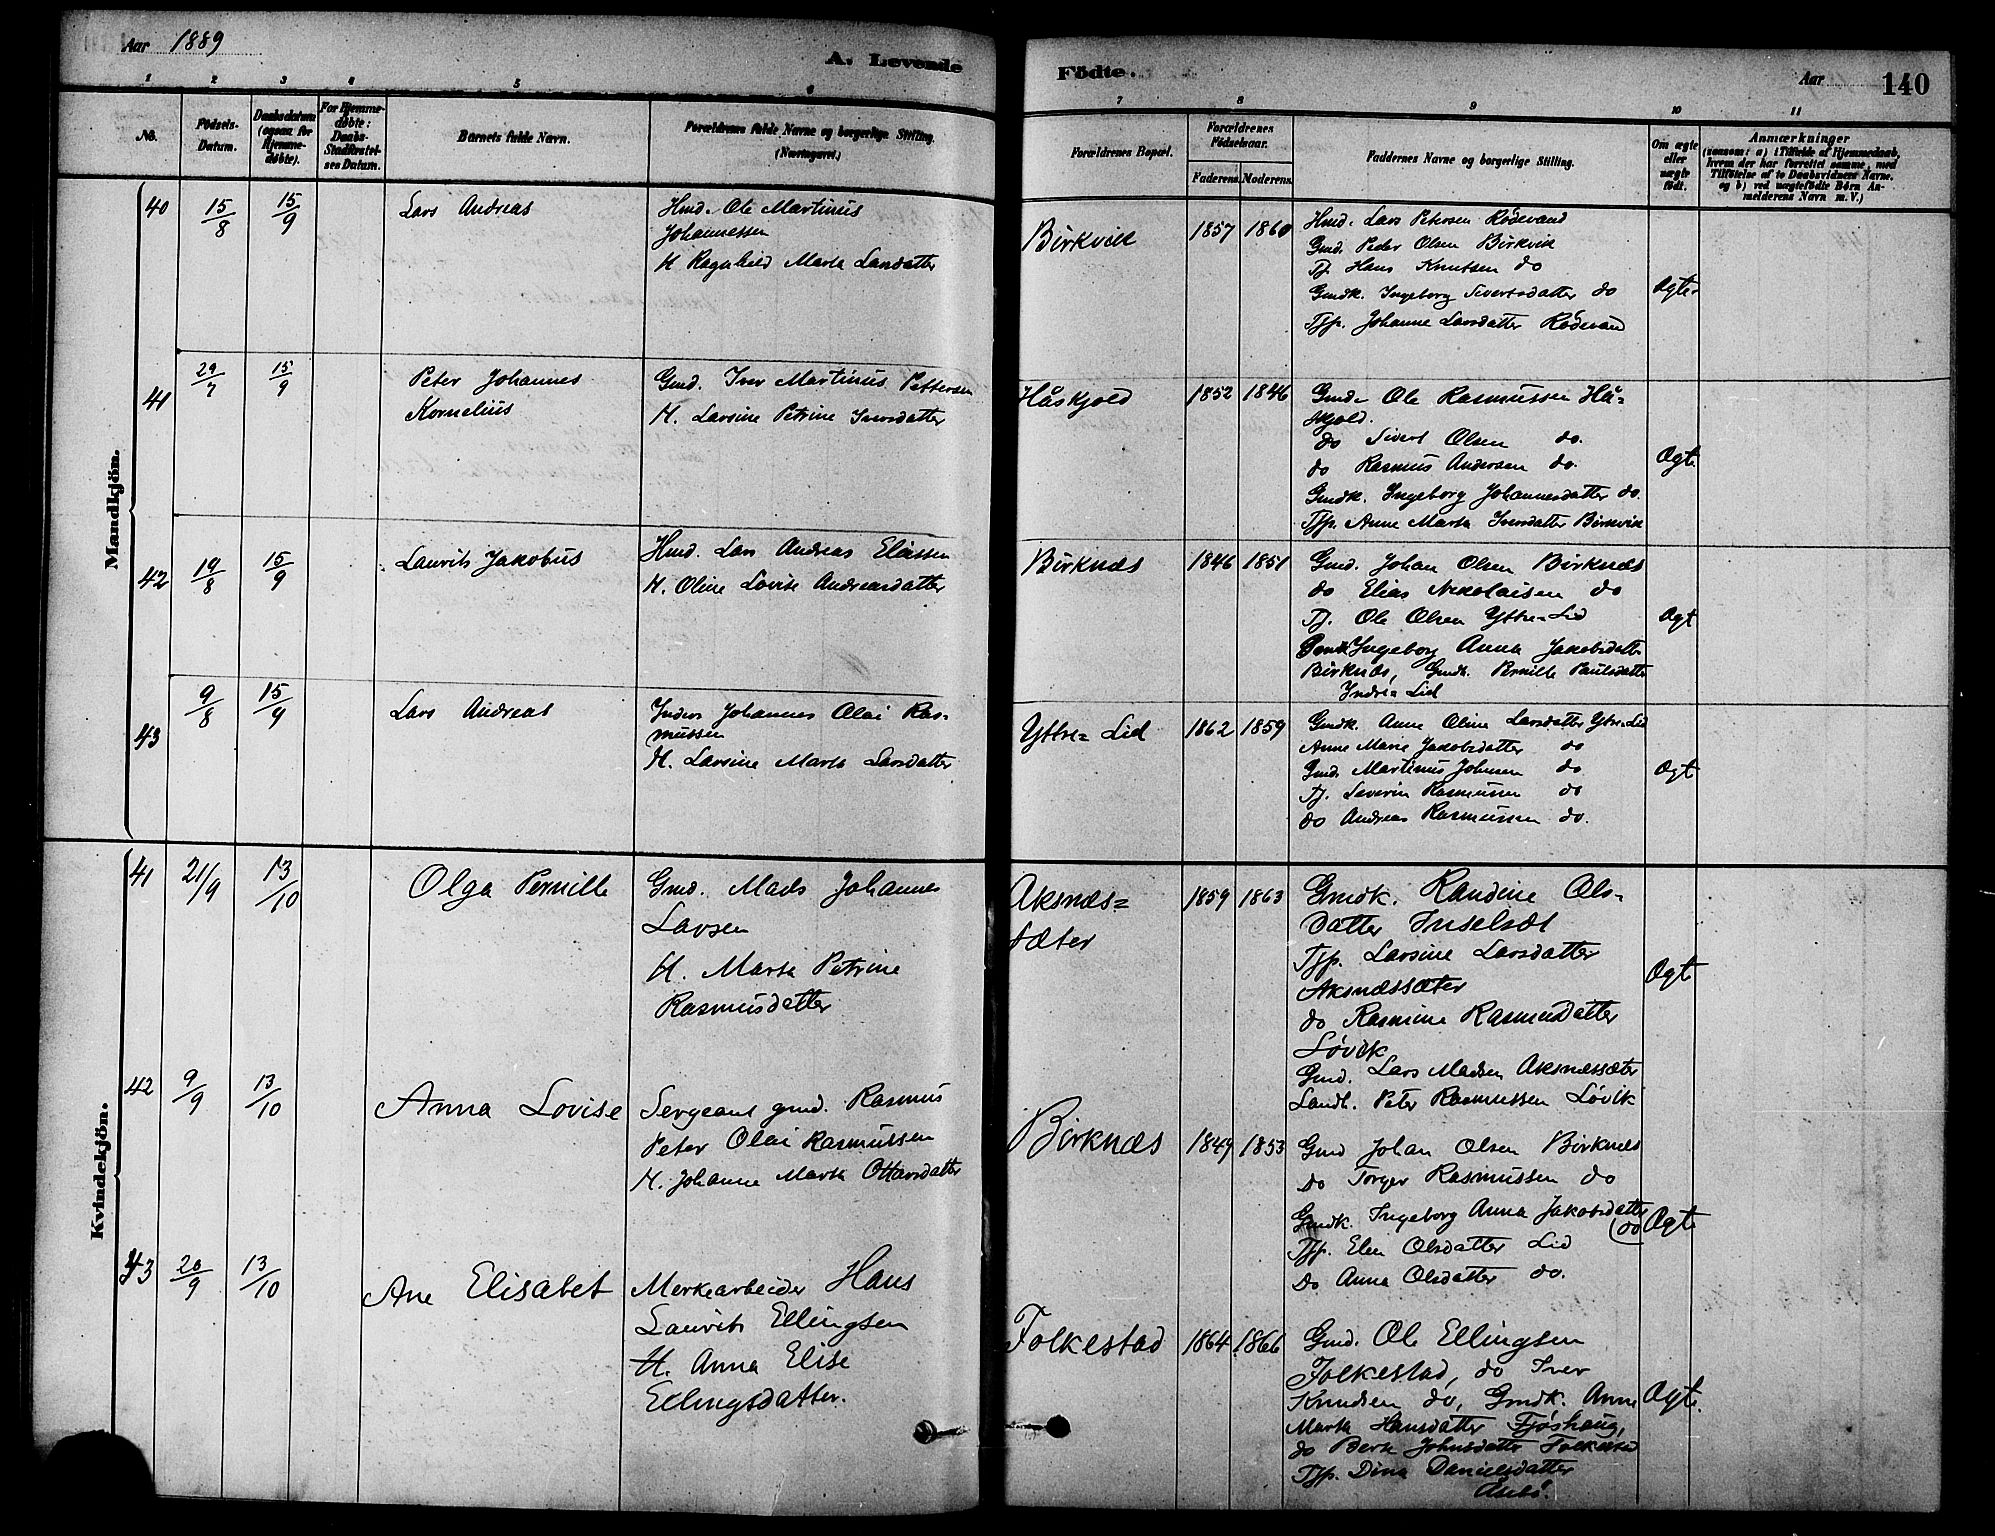 Aar 1889
A. Levende
Födte.
Aar
140
1 2 3 4 5 6 7 8 9 10 11
No.
Födsels-
Datum.
Daabsdatum
(ogsaa for
Hjemme-
døbte).
For Hjemme-
døbte:
Daabs-
Stadfæstel-
ses Datum.
Barnets fulde Navn.
Forældrenes fulde Navne og borgerlige Stilling.
(Næringsvei.)
Forældrenes Bopæl.
Forældrenes
Födselsaar.
Faderens. Moderens.
Faddernes Navne og borgerlige Stilling.
Om ægte
eller
uægte
født.
Anmærkninger
(saasom: a) i Tilfælde af Hjemmedaab,
hvem der har forrettet samme, med
Tilføielse af to Daabsvidners Navne,
og b) ved uægtefødte Børn An-
melderens Navn m. V.)
Mandkjön.
40
15/8
15/9
Lars Andreas
Hmd. Ole Martinus
Johannessen
H Ragnhild Marta Larsdatter
Birkvik
1857 1860
Hmd. Lars Petersen Rödevand
Gmd. Peder Olsen Birkvik
Tj. Hans Knutsen do
Gmdk. Ingeborg Sivertsdatter do
Tjp. Johanne Larsdatter Rödevand
Ægte
41
29/7
15/9
Peter Johannes
Kornelius
Gmd. Iver Martinus Pettersen
H. Larsine Petrine Iversdatter
Håskjold
1852 1846
Gmd. Ole Rasmussen Hå-
skjold.
do Sivert Olsen do.
do Rasmus Andersen do.
Gmdk. Ingeborg Johannesdatter do.
Tjp. Anne Marta Iversdatter Birkvik
Ægte
42
19/8
15/9
Laurits Jakobus
Hmd. Lars Andreas Eliassen
H. Oline Lovise Andreasdatter
Birknæs
1846 1851
Gmd. Johan Olsen Birknæs
do Elias Nikolaisen do
Tj. Ole Olsen Yttre-Lid
Gmdk Ingeborg Anna Jakobsdatter
Birknæs, Gmdk. Pernille Paulsdatter
Indre-Lid
Ægt
43
9/8
15/9
Lars Andreas
Inders Johannes Olai Ras-
mussen
H. Larsine Marta Larsdatter
Yttre-Lid
1862 1859
Gmdk. Anne Oline Larsdatter Ytre-Lid
Anne Marie Jakobsdatter do
Gmd. Martinus Johnsen do
Tj. Severin Rasmussen do
do Andreas Rasmussen do.
Ægt
Kvindekjön.
41
21/9
13/10
Olga Pernille
Gmd. Mads Johannes
Larsen
H. Marta Petrine
Rasmusdatter
Aksnæs-
sæter
1859 1863
Gmdk. Randine Ols-
datter Inselset
Tjp. Larsine Larsdatter
Aksnæssæter
do Rasmine Rasmusdatter
Løvik
Gmd. Lars Madsen Aksnæssæter
Landh. Peter Rasmussen Løvik
Ægte
42
9/9
13/10
Anna Lovise
Sergeant gmd. Rasmus
Peter Olai Rasmussen
H. Johanne Marta Ottarsdatter
Birknæs
1849 1853
Gmd Johan Olsen Birknæs
do Torger Rasmussen do
Gmdk. Ingeborg Anna Jakobsdatter
do
Tjp. Elen Olsdatter Lid
do Anna Olsdatter do.
Ægte
43
20/9
13/10
Ane Elisabet
Merkearbeider Hans
Laurits Ellingsen
H. Anna Elise
Ellingsdatter.
Folkestad
1864 1866
Gmd. Ole Ellingsen
Folkestad, do Iver
Knudsen do, Gmdk. Anne
Marta Hansdatter Fjøshaug,
do Berte Johnsdatter Folkestad
Tjp. Dina Danielsdatter
Åsebö.
Ægte.